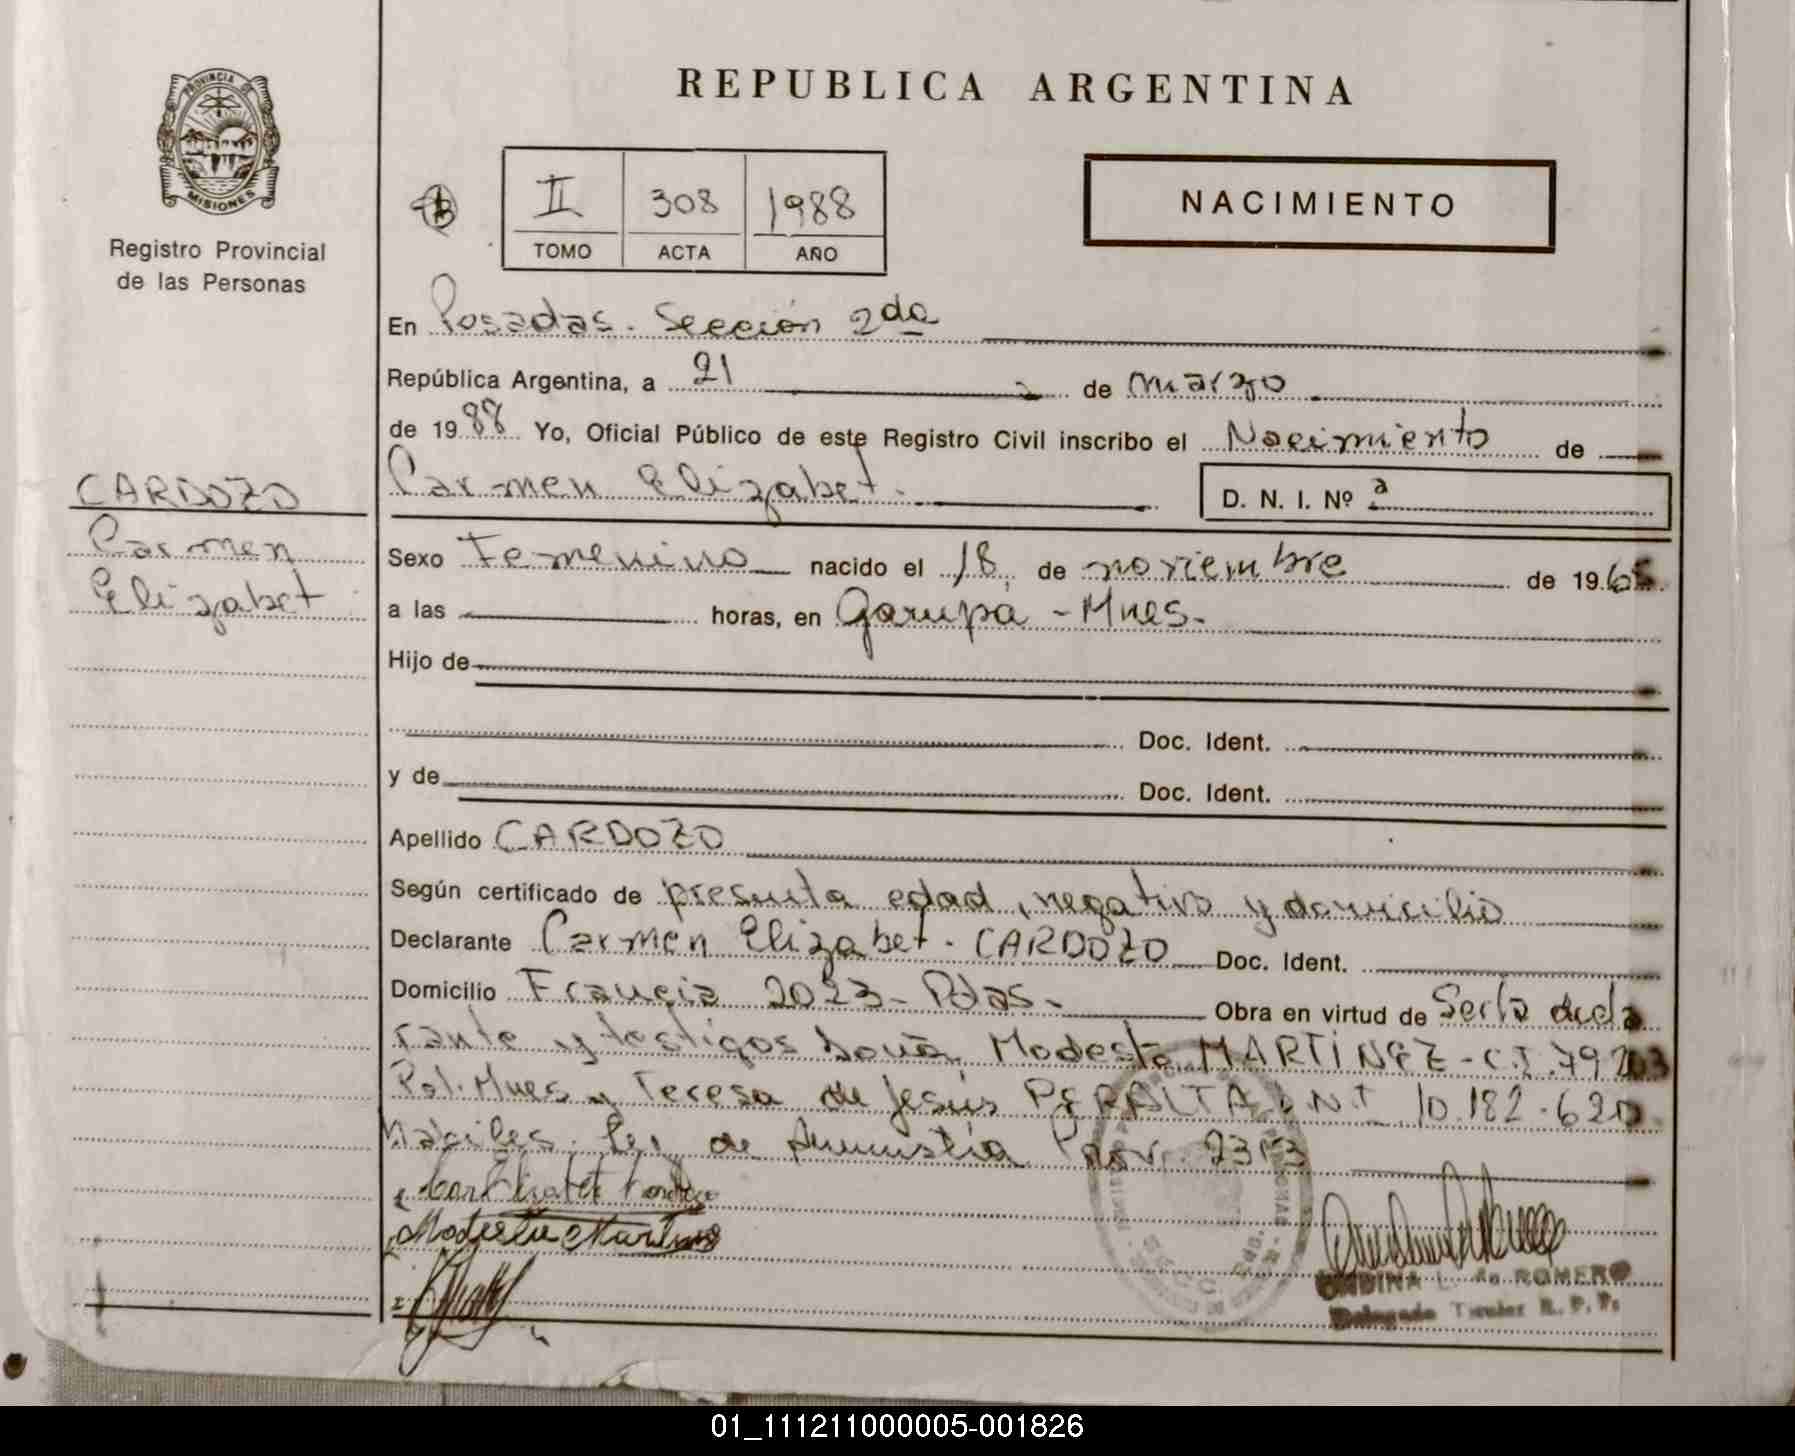 PROVINCIA DE
MISIONES
Registro Provincial
de las Personas
CARDOZO
Carmen
Elizabet
REPUBLICA ARGENTINA
II 308 1988
TOMO ACTA AÑO
NACIMIENTO
En Posadas. Sección 2da
República Argentina, a 21 de marzo
de 1988 Yo, Oficial Público de este Registro Civil inscribo el Nacimiento de
Carmen Elizabet. D. N. I. Nº
Sexo Femenino nacido el 18 de noviembre de 1965
a las horas, en Garupá - Mnes.
Hijo de
Doc. Ident.
y de Doc. Ident.
Apellido CARDOZO
Según certificado de presunta edad, negativo y domicilio
Declarante Carmen Elizabet. CARDOZO Doc. Ident.
Domicilio Francia 2023 - Pdas. Obra en virtud de Ser la decla
rante y testigos Modesta MARTINEZ - C.I. 79203
Pol. Mnes y Teresa de Jesús PERALTA D.N.I 10.182.620
Ley de Amnistía Prov. 2313
Modesta Martinez
ONDINA L. de ROMERO
Delegada Titular R. P. P.
01_111211000005-001826